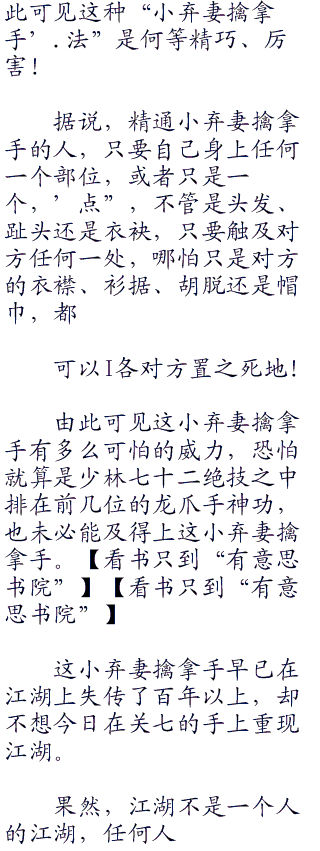 此可见这种“小弃妻擒拿
手’.法”是何等精巧、厉
害！
据说，精通小弃妻擒拿
手的人，只要自己身上任何
一个部位，或者只是一
个，’点”，不管是头发、
趾头还是衣袂，只要触及对
方任何一处，哪怕只是对方
的衣襟、衫据、胡脱还是帽
巾，都
可以I各对方置之死地！
由此可见这小弃妻擒拿
手有多么可怕的威力，恐怕
就算是少林七十二绝技之中
排在前几位的龙爪手神功，
也未必能及得上这小弃妻擒
拿手。【看书只到“有意思
书院”】【看书只到“有意
思书院”】
这小弃妻擒拿手早已在
江湖上失传了百年以上，却
不想今日在关七的手上重现
江湖。
果然，江湖不是一个人
的江湖，任何人